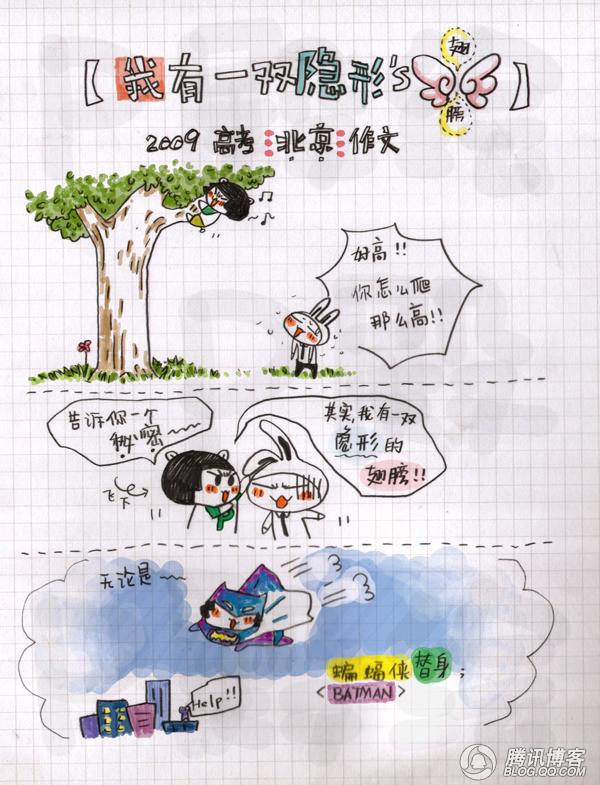 【我有一双隐形's翅膀】
2009高考北京作文
好高!!
你怎么爬
那么高!!
告诉你一个
秘密~~
其实,我有一双
隐形的
翅膀!!
飞下
无论是~~
蝙蝠侠替身;
<BATMAN>
Help!!
腾讯博客
BLOG.QQ.COM